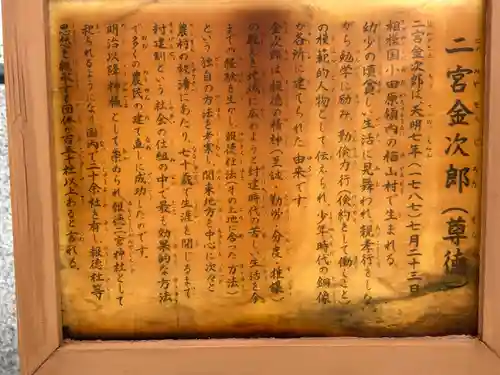 二宮金次郎（尊徳）
二宮金次郎は天明七年（一七八七）七月二十三日
相模国小田原領内の栢山村で生まれる。
幼少の頃貧しい生活に見舞われ、親孝行をしな
がら勉学に励み、勤倹力行（倹約をして働くこと）
の模範的人物として伝えられ、少年時代の銅像
が各所に建てられた由来です。
金次郎は報徳の精神（至誠・勤労・分度・推譲）
の教えを地域に広めようと封建時代の苦しい生活を含
まずの経験を生かし、報徳仕法（その土地に合った方法）
という独自の方法を考案し関東地方を中心に次々と
農村の救済にあたり、七十歳で生涯を閉じるまで
封建制という社会の仕組の中で、最も効果的な方法
で多くの農民の建て直しに成功したのです。
明治以降神様として崇められ報徳二宮神社として
祀られるようになり国内で二十余社を有し、報徳社等
思想を継承する団体が百二十社以上あると言われる。